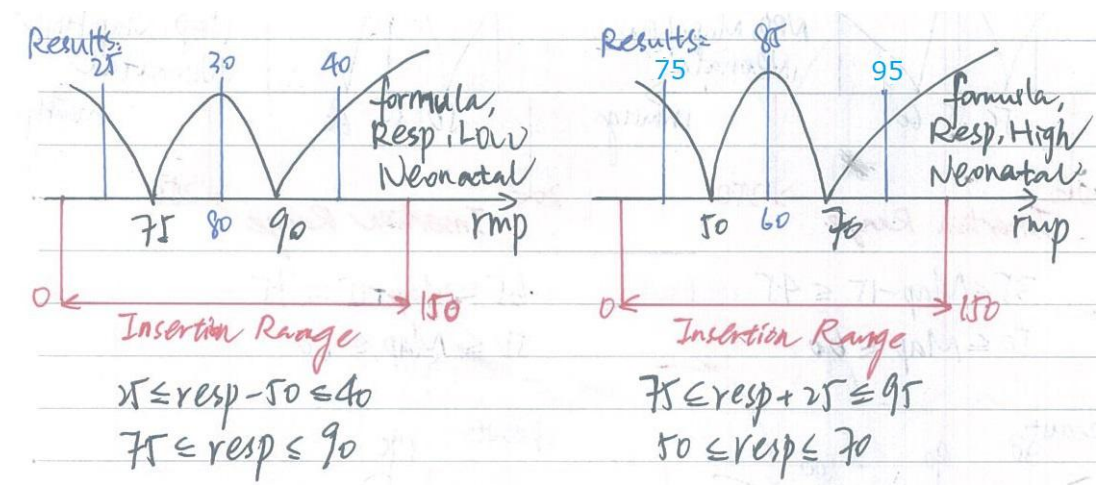 Results:
25 30 40
formula,
Resp, Low
Neonatal
75 80 90 rmp
0 150
Insertion Range
25 ≤ resp - 50 ≤ 40
75 ≤ resp ≤ 90
Results:
75 85 95
formula,
Resp, High
Neonatal
50 60 70 rmp
0 150
Insertion Range
75 ≤ resp + 25 ≤ 95
50 ≤ resp ≤ 70